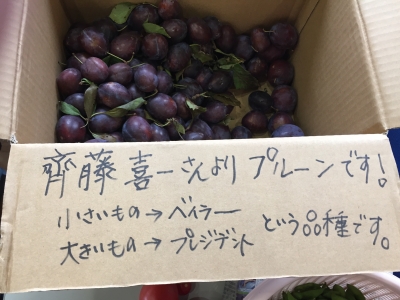 齊藤喜一さんよりプルーンです!
小さいもの→ベイラー
大きいもの→プレジデント
という品種です。